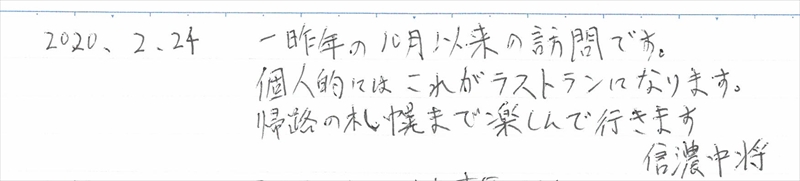 2020、2、24 一昨年の10月以来の訪問です。
個人的にはこれがラストランになります。
帰路の札幌まで楽しんで行きます
信濃中将